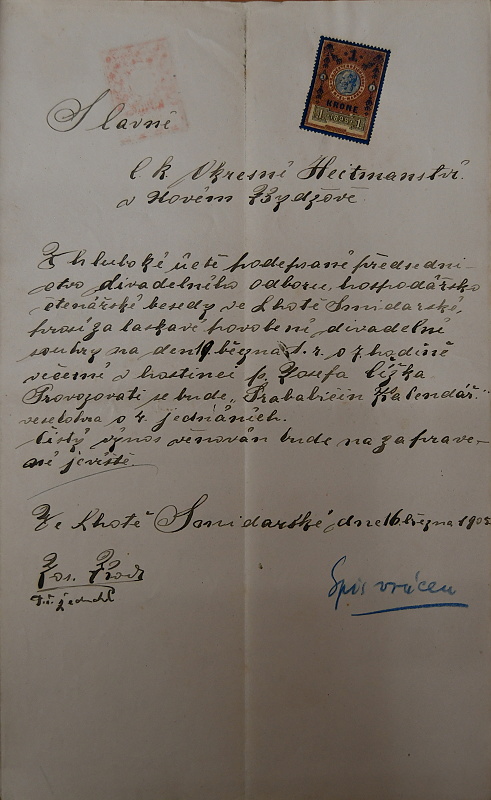 1
KRONE
1 1898 1
Slavné
C. k. Okresní Heitmanství
v Novém Bydžově
Z hluboké úctě podepsané předsedni-
ctvo divadelního odboru, hospodářsko
čtenářské besedy ve Lhotě Smidarské,
prosí za laskavé povolení divadelní
souhry na den 19. března t. r. o 7 hodině
večerní v hostinci p. Josefa Číška.
Provozovati se bude „Prababiččin Kalendář."
veselohra o 4 jednáních.
Čistý výnos věnován bude na zaprave-
né jeviště.
Ve Lhotě Smidarské, dne 16 března 1905
Jos.
t. č. jednatel
Spis vrácen